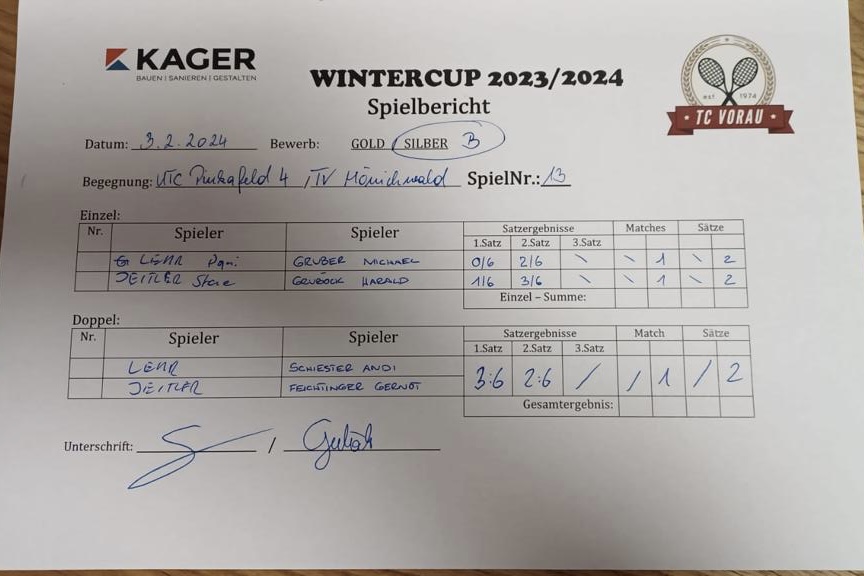 KAGER
BAUEN | SANIEREN | GESTALTEN
WINTERCUP 2023/2024
Spielbericht
est 1974
TC VORAU
Datum: 3.2.2024 Bewerb: GOLD / SILBER B
Begegnung: UTC Pinkafeld 4 / TV Mönichwald SpielNr.: 13
Einzel:
Nr. Spieler Spieler Satzergebnisse Matches Sätze
1.Satz 2.Satz 3.Satz
LEHR GRUBER MICHAEL 0/6 2/6 \ \ 1 \ 2
JEITLER HARALD 1/6 3/6 \ \ 1 \ 2
Einzel – Summe:
Doppel:
Nr. Spieler Spieler Satzergebnisse Match Sätze
1.Satz 2.Satz 3.Satz
LEHR SCHIESTER ANDI 3:6 2:6 / / 1 / 2
JEITLER FEICHTINGER GERNOT
Gesamtergebnis:
Unterschrift: /